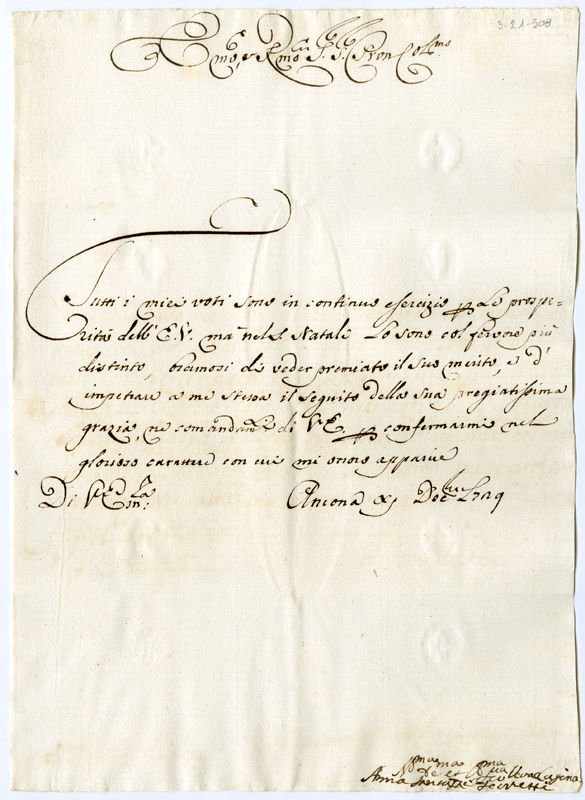 3-21-508
Emo, e Rmo Sig. Sig. Pron Colmo
Tutti i miei voti sono in continuo esercizio per le prospe=
rità dell' E.V. mà nel SS. Natale lo sono col fervore più
distinto, bramosi di veder premiato il Suo merito, e d'
impetrare a me stessa il seguito della Sua pregiatissima
grazia, ne comandamti di V.E. per confermarmi nel
glorioso carattere con cui mi onoro apparire
Di V.E.
Ancona Dbre
Anna